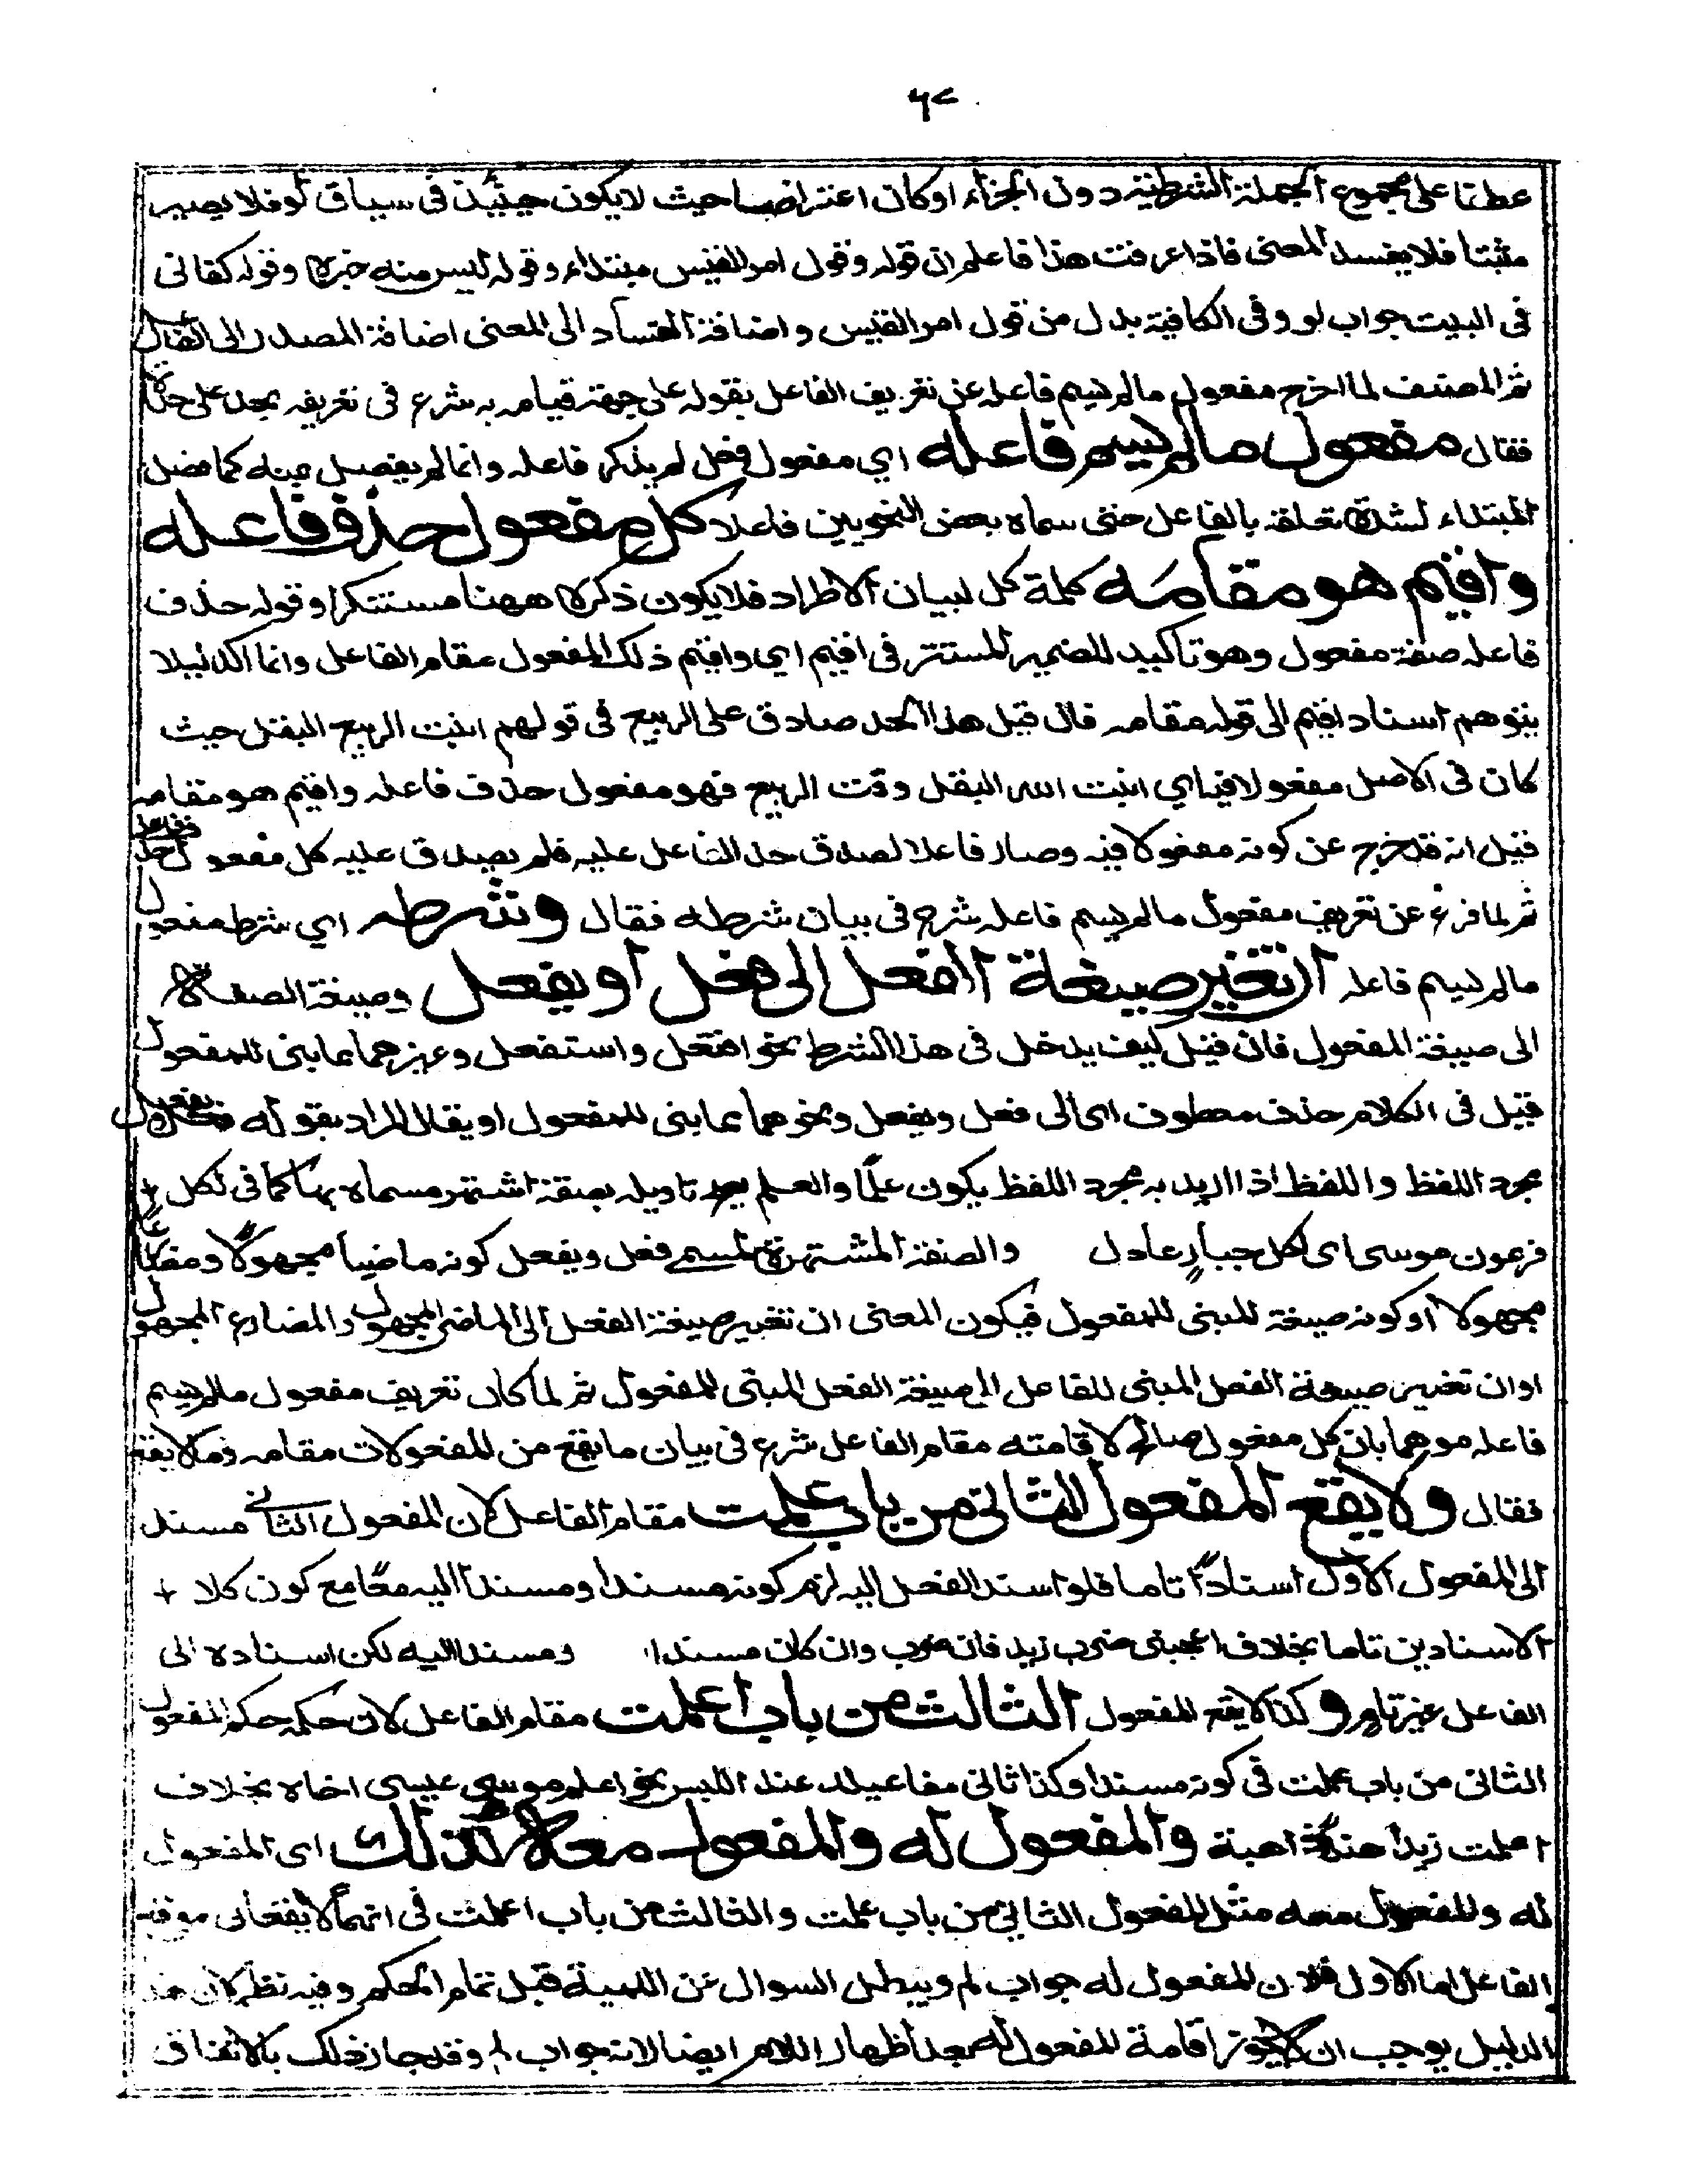 ٦٢
عطفا على مجموع الجملة الشرطية دون الجزاء او كان اعتراضا حيث لا يكون حينئذ في سياق لو فلا يصير
مثبتا فلا يفسد المعنى فاذا عرفت هذا فاعلم ان قوله وقول امرالقيس مبتداء وقوله ليس منه خبره وقوله كفاني
في البيت جواب لو وفي الكافية بدل من قول امرالقيس واضافة الفساد الى المعنى اضافة المصدر الى الفاعل
ثم المصنف لما اخرج مفعول مالم يسم فاعله عن تعريف الفاعل بقوله على جهة قيامه به شرع في تعريفه بحد على حدة
فقال مفعول مالم يسم فاعله اي مفعول فعل لم يذكر فاعله وانما لم يفصل عنه كما فصل
المبتداء لشدة تعلقه بالفاعل حتى سماه بعض النحويين فاعلا كل مفعول حذف فاعله
واقيم هو مقامه كلمة كل لبيان الاطراد فلا يكون ذكره ههنا مستنكرا وقوله حذف
فاعله صفة مفعول وهو تاكيد للضمير المستتر في اقيم اي واقيم ذلك المفعول مقام الفاعل وانما اكد ليلا
يتوهم اسناد اقيم الى قوله مقامه فان قيل هذا الحد صادق على الربيع في قولهم انبت الربيع البقل حيث
كان في الاصل مفعولا فيه اي انبت الله البقل وقت الربيع فهو مفعول حذف فاعله واقيم هو مقامه
قيل انه قد خرج عن كونه مفعولا فيه وصار فاعلا لصدق حد الفاعل عليه فلم يصدق عليه كل مفعول حذف فاعله
ثم لما فرغ عن تعريف مفعول مالم يسم فاعله شرع في بيان شرطه فقال وشرطه اي شرط مفعول
مالم يسم فاعله ان تغير صيغة الفعل الى فعل او يفعل وصيغة الصفة
الى صيغة المفعول فان قيل كيف يدخل في هذا الشرط نحو افتعل واستفعل وغيرهما مما بنى للمفعول
قيل في الكلام حذف معطوف اى الى فعل ويفعل ونحوهما مما بنى للمفعول او يقال المراد بقوله فعل ويفعل
مجرد اللفظ واللفظ اذا اريد به مجرد اللفظ يكون علما والعلم يعد تاويله بصفة اشتهر مسماه بها كما في لكل
فرعون موسى اى لكل جبار عادل والصفة المشتهرة لمسمى فعل ويفعل كونه ماضيا مجهولا ومضارعا
مجهولا او كونه صيغة للمبنى للمفعول فيكون المعنى ان تغير صيغة الفعل الى الماضي المجهول والمضارع المجهول
او ان تغير صيغة الفعل المبنى للفاعل الى صيغة الفعل المبنى للمفعول ثم لما كان تعريف مفعول مالم يسم
فاعله موهما بان كل مفعول صالح لاقامته مقام الفاعل شرع في بيان ما يقع من المفعولات مقامه ومالا يقع
فقال ولا يقع المفعول الثاني من باب علمت مقام الفاعل لان المفعول الثاني مسند
الى المفعول الاول اسنادا تاما فلو اسند الفعل اليه لزم كونه مسندا ومسندا اليه معا مع كون كلا
الاسنادين تاما بخلاف اعجبني ضرب زيد فان ضرب وان كان مسندا ومسندا اليه لكن اسناده الى
الفاعل غير تام وكذا لا يقع المفعول الثالث من باب اعلمت مقام الفاعل لان حكمه حكم المفعول
الثاني من باب علمت في كونه مسندا وكذا ثاني مفاعيله عند اللبس نحو اعلم موسى عيسى اخاه بخلاف
اعلمت زيدا هندا ذاهبة والمفعول له والمفعول معه كذلك اى المفعول
له والمفعول معه مثل المفعول الثاني من باب علمت والثالث من باب اعلمت في انهما لا يقعان موقع
الفاعل اما الاول فلان المفعول له جواب لم ويبطل السوال عن اللمية قبل تمام الحكم وفيه نظر لان هذا
الدليل يوجب ان لا يجوز اقامة المفعول له بعد اظهار اللام ايضا لانه جواب لم وقد جاز ذلك بالاتفاق